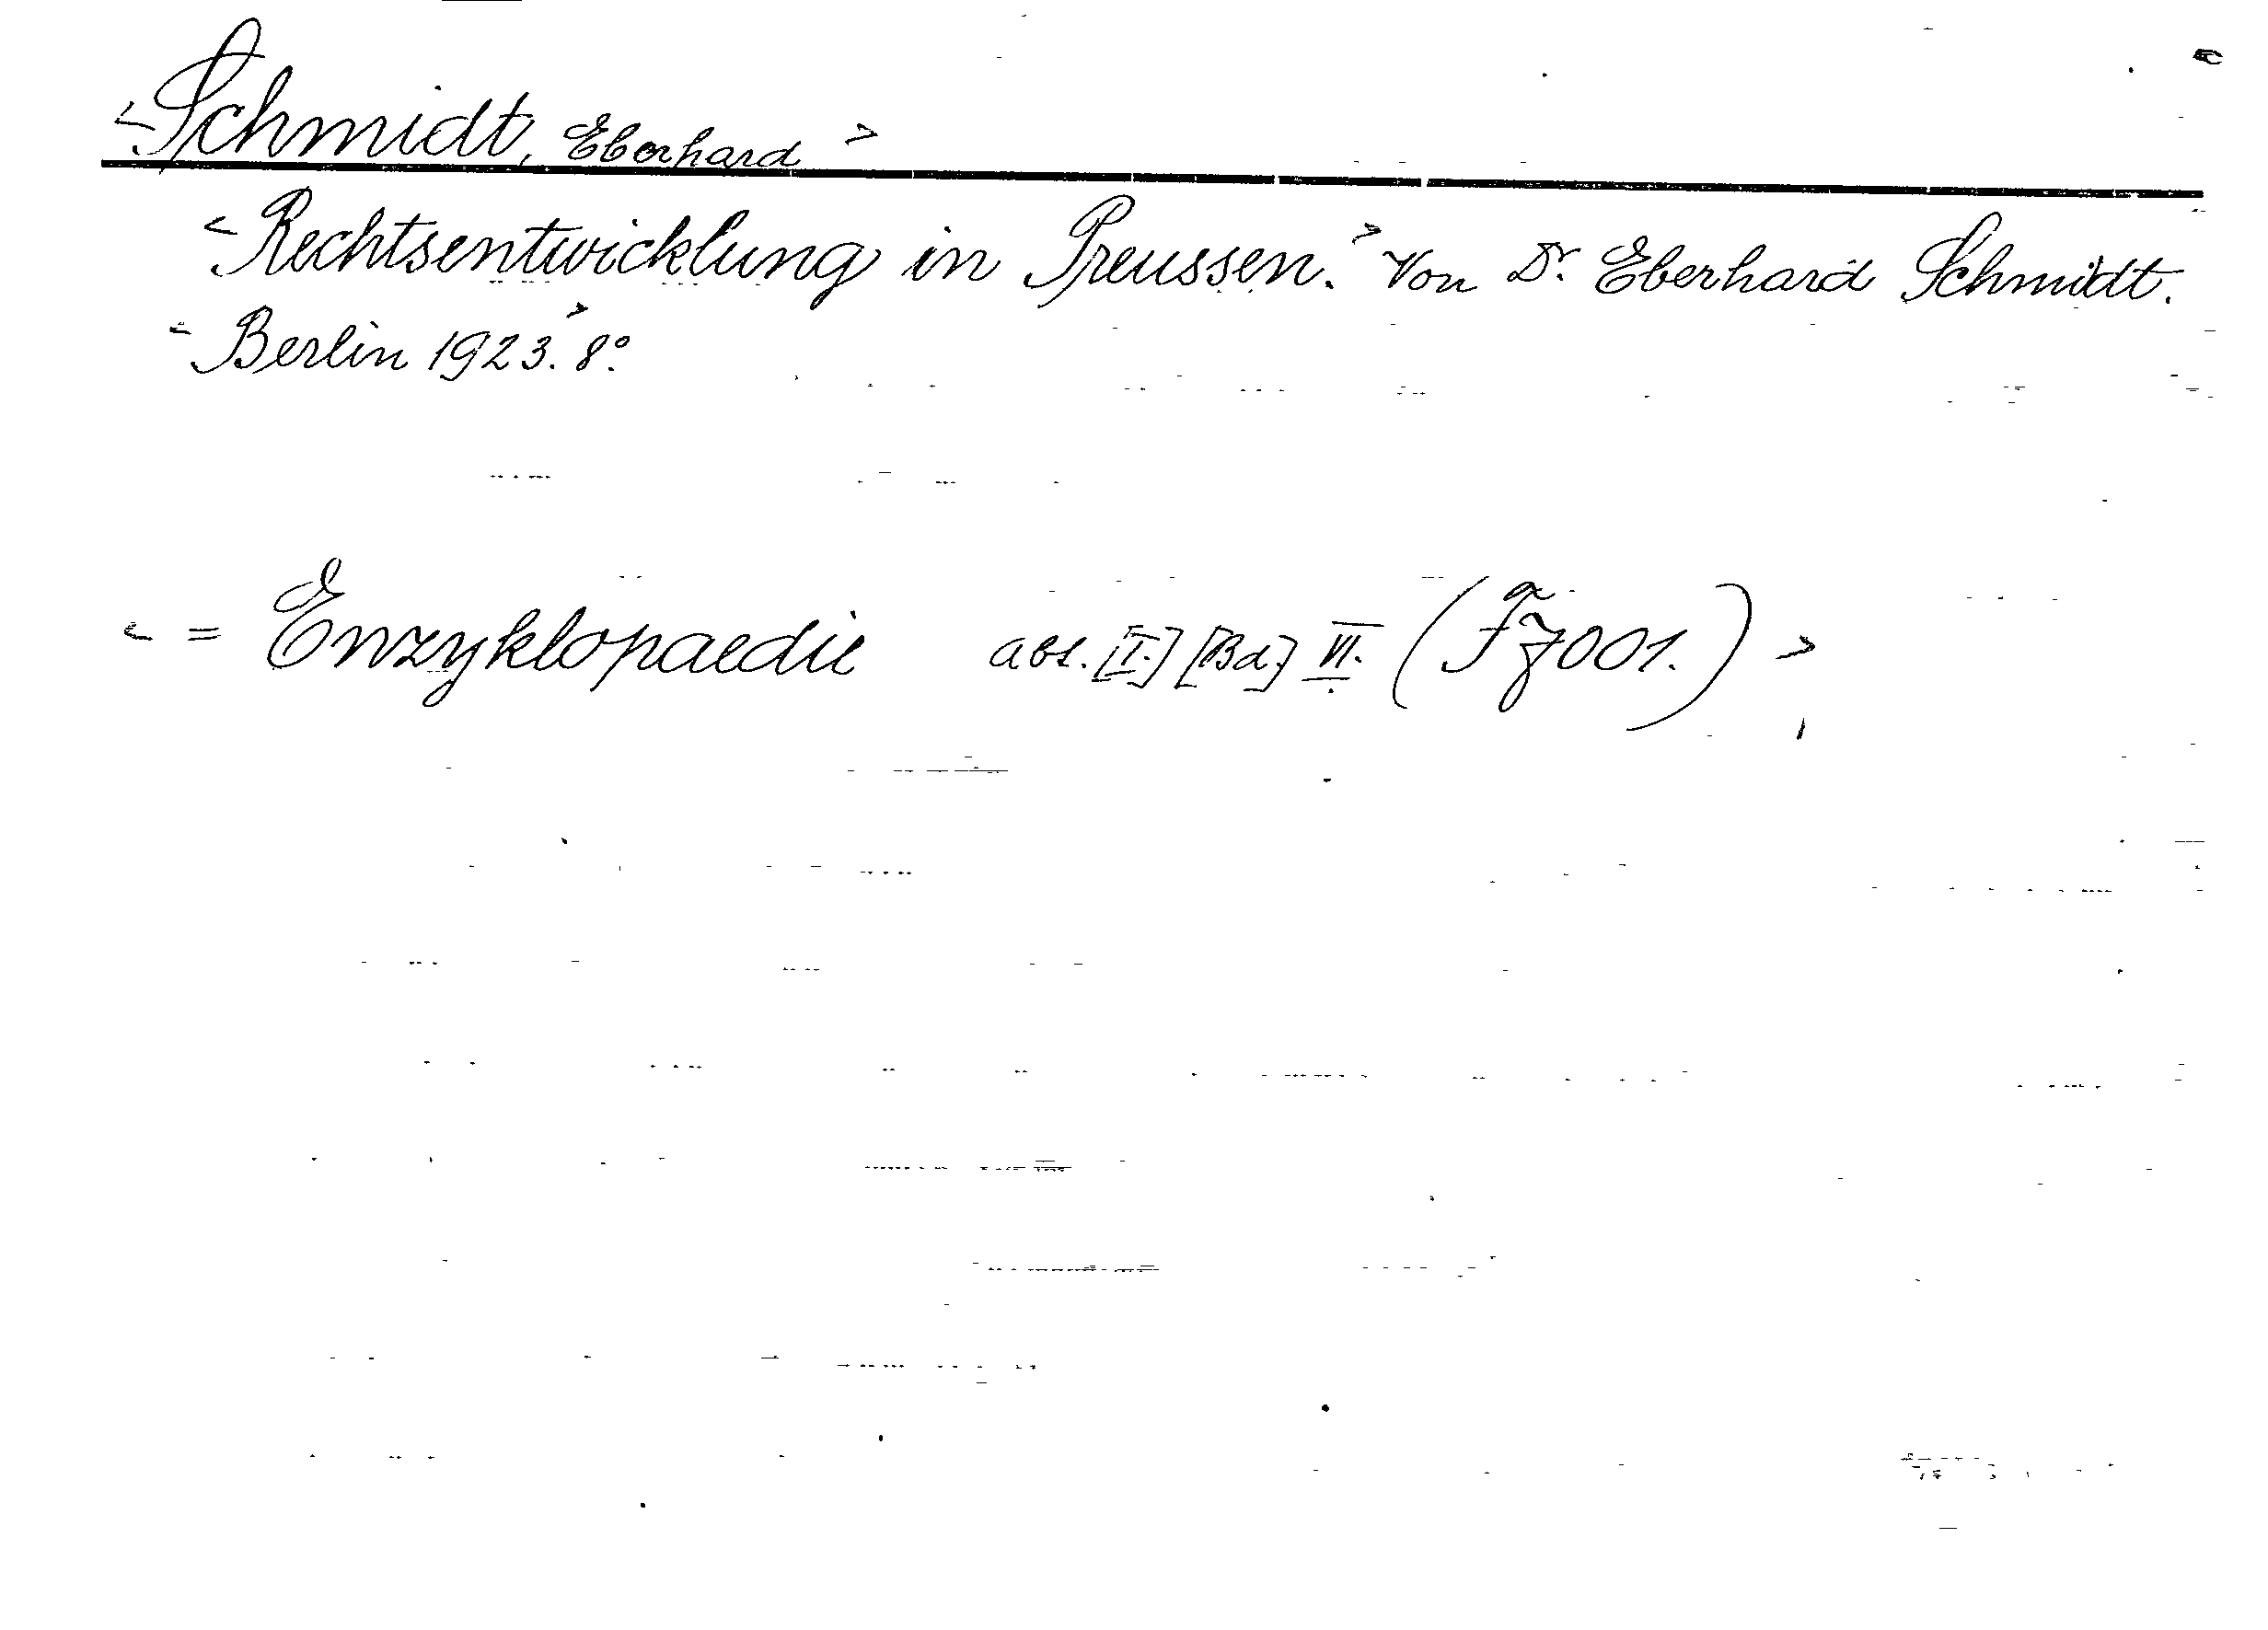 <Schmidt, Eberhard>
<Rechtsentwicklung in Preussen.> Von Dr. Eberhard Schmidt.
<Berlin 1923.> 8°.
<= Enzyklopaedie abt. [I.] [Bd.] VI. (Fz001.)>